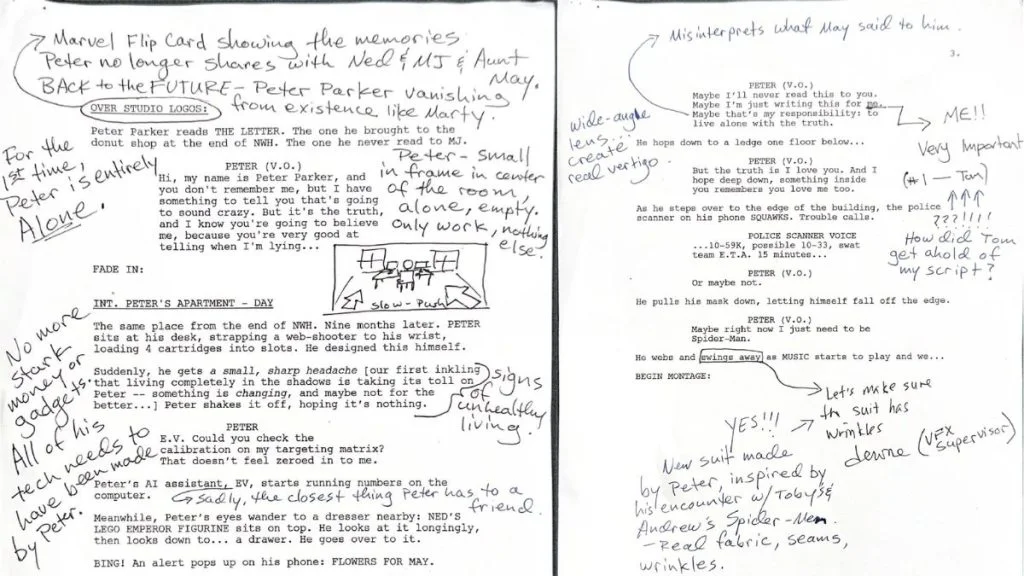 Marvel Flip Card showing the memories
Peter no longer shares with Ned & MJ & Aunt
May.
BACK to the FUTURE - Peter Parker vanishing
from existence like Marty.
OVER STUDIO LOGOS:
Peter Parker reads THE LETTER. The one he brought to the
donut shop at the end of NWH. The one he never read to MJ.
For the
1st time,
Peter is entirely
Alone.
PETER (V.O.)
Hi, my name is Peter Parker, and
you don't remember me, but I have
something to tell you that's going
to sound crazy. But it's the truth,
and I know you're going to believe
me, because you're very good at
telling when I'm lying...
Peter - small
in frame in center
of the room
alone, empty.
Only work, nothing
else.
FADE IN:
slow-push
INT. PETER'S APARTMENT - DAY
The same place from the end of NWH. Nine months later. PETER
sits at his desk, strapping a web-shooter to his wrist,
loading 4 cartridges into slots. He designed this himself.
No more
Stark
money or
gadgets.
All of his
tech needs to
have been made
by Peter.
Suddenly, he gets a small, sharp headache [our first inkling
that living completely in the shadows is taking its toll on
Peter -- something is changing, and maybe not for the
better...] Peter shakes it off, hoping it's nothing.
signs
of
unhealthy
living.
PETER
E.V. Could you check the
calibration on my targeting matrix?
That doesn't feel zeroed in to me.
Peter's AI assistant, EV, starts running numbers on the
computer.
Sadly, the closest thing Peter has to a
friend.
Meanwhile, Peter's eyes wander to a dresser nearby: NED'S
LEGO EMPEROR FIGURINE sits on top. He looks at it longingly,
then looks down to... a drawer. He goes over to it.
BING! An alert pops up on his phone: FLOWERS FOR MAY.
Misinterprets what May said to him.
3.
PETER (V.O.)
Maybe I'll never read this to you.
Maybe I'm just writing this for me.
Maybe that's my responsibility: to
live alone with the truth.
wide-angle
lens...
create
real vertigo.
ME!!
Very Important
(#1 - Tom)
???!!!!
How did Tom
get ahold of
my script?
He hops down to a ledge one floor below...
PETER (V.O.)
But the truth is I love you. And I
hope deep down, something inside
you remembers you love me too.
As he steps over to the edge of the building, the police
scanner on his phone SQUAWKS. Trouble calls.
POLICE SCANNER VOICE
...10-59K, possible 10-33, swat
team E.T.A. 15 minutes...
PETER (V.O.)
Or maybe not.
He pulls his mask down, letting himself fall off the edge.
PETER (V.O.)
Maybe right now I just need to be
Spider-Man.
He webs and swings away as MUSIC starts to play and we...
BEGIN MONTAGE:
Let's make sure
the suit has
wrinkles
(VFX
Supervisor)
YES!!!
New suit made
by Peter, inspired by
his encounter w/ Toby's &
Andrew's Spider-Men
- Real fabric, seams,
wrinkles.